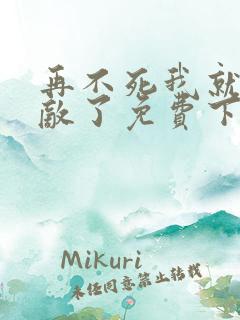 再不死我就
敌了免費下
Mikuri
未经同意禁止转载